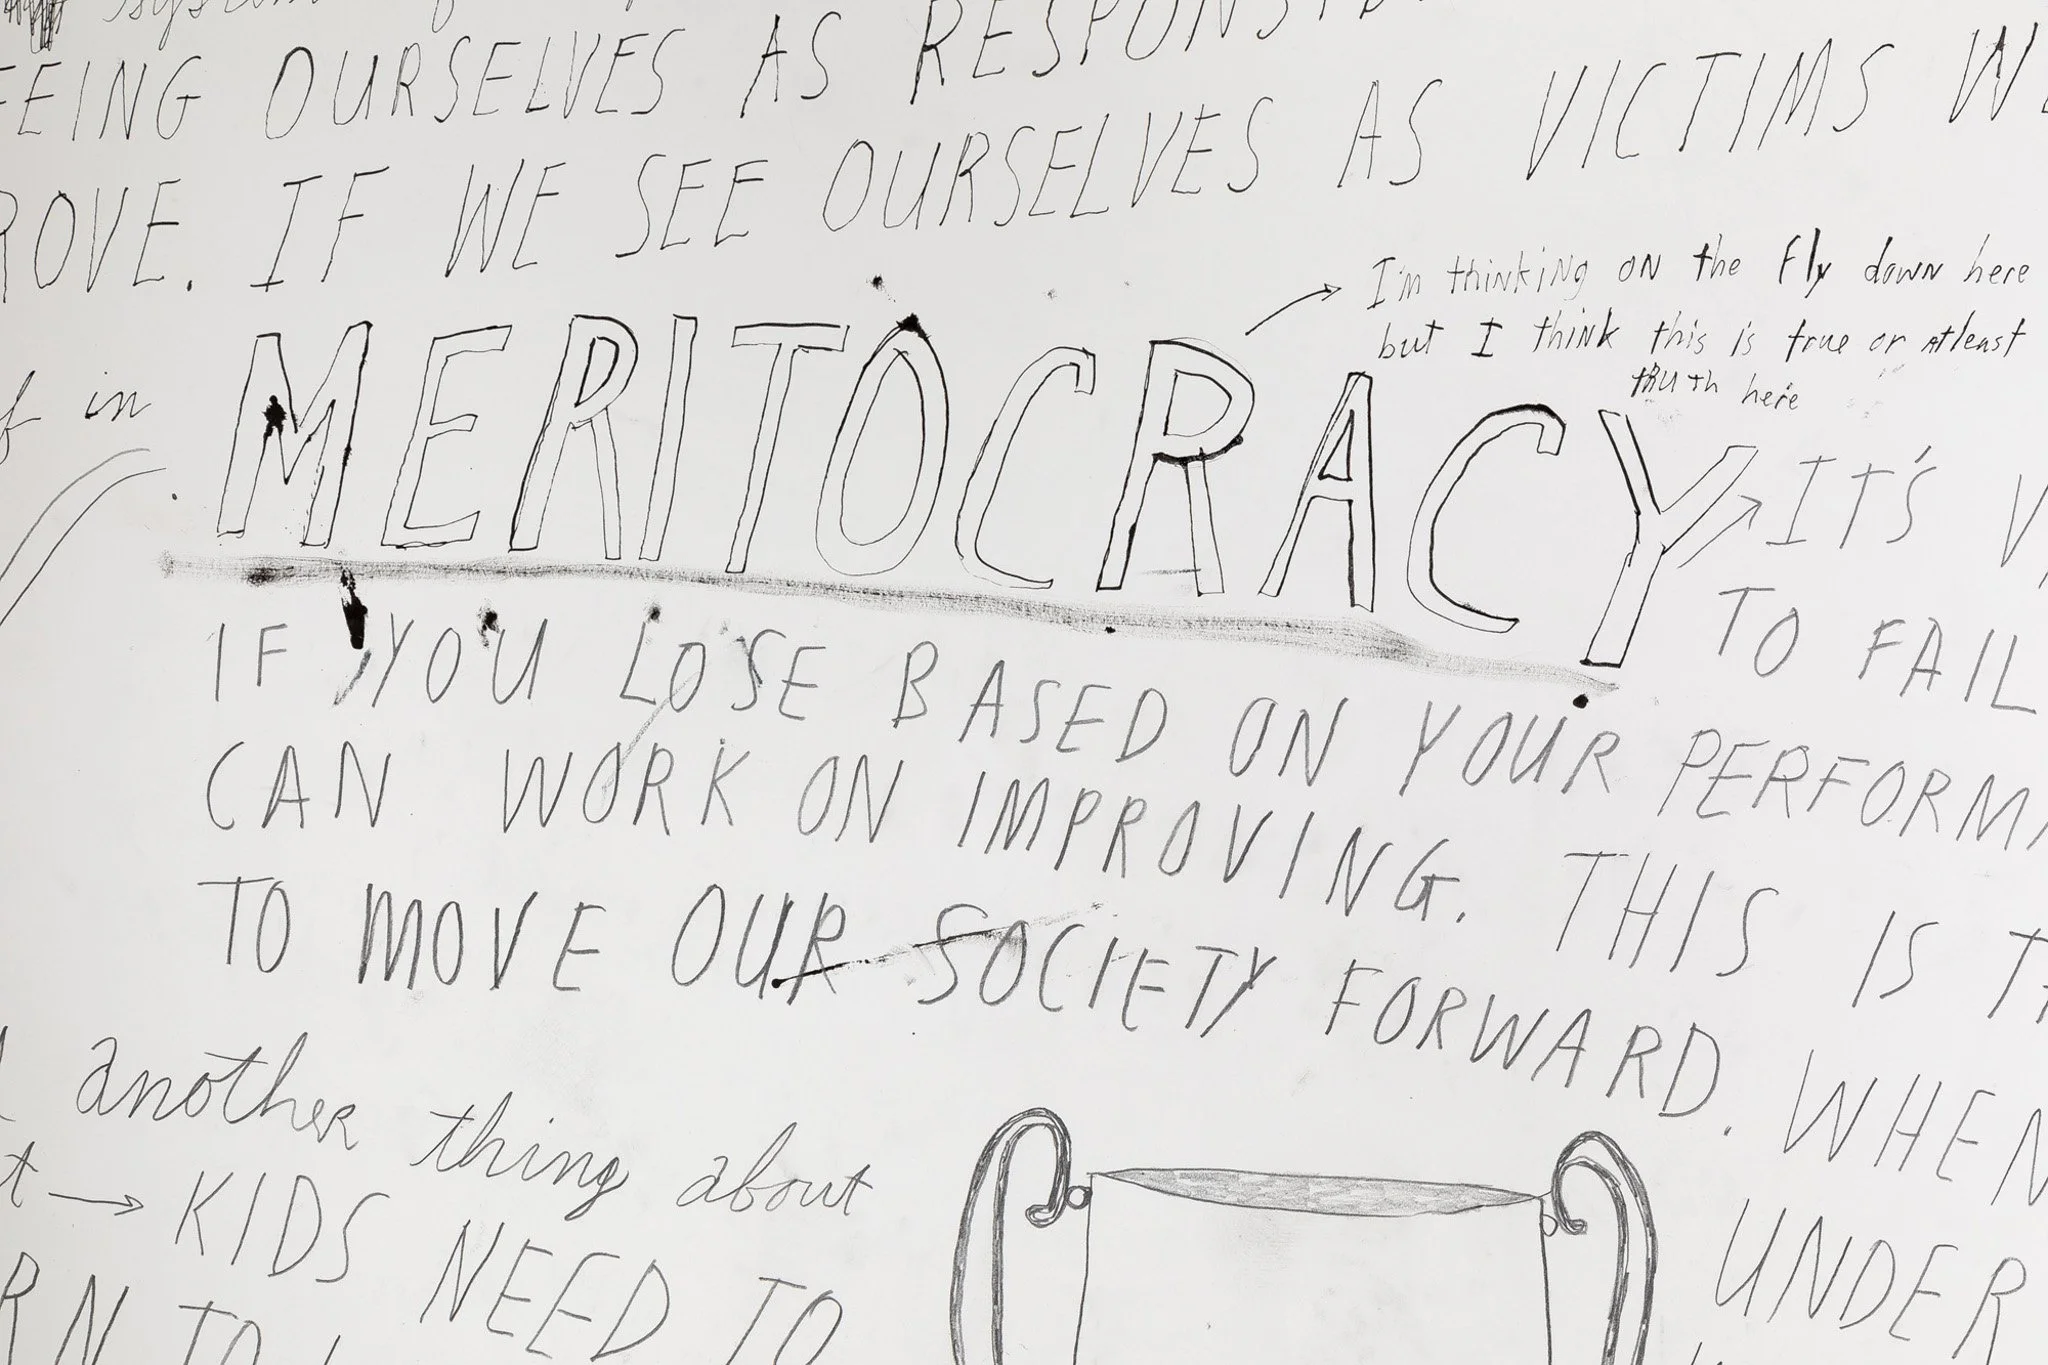 system of
OURSELVES AS
ROVE. IF WE SEE OURSELVES AS VICTIMS
I'm thinking on the fly down here
but I think this is true or atleast
truth here
in MERITOCRACY
IT'S
TO FAIL
IF YOU LOSE BASED ON YOUR PERFORM
CAN WORK ON IMPROVING. THIS IS
TO MOVE OUR SOCIETY FORWARD. WHEN
another thing about
KIDS NEED TO
UNDER
RN TO